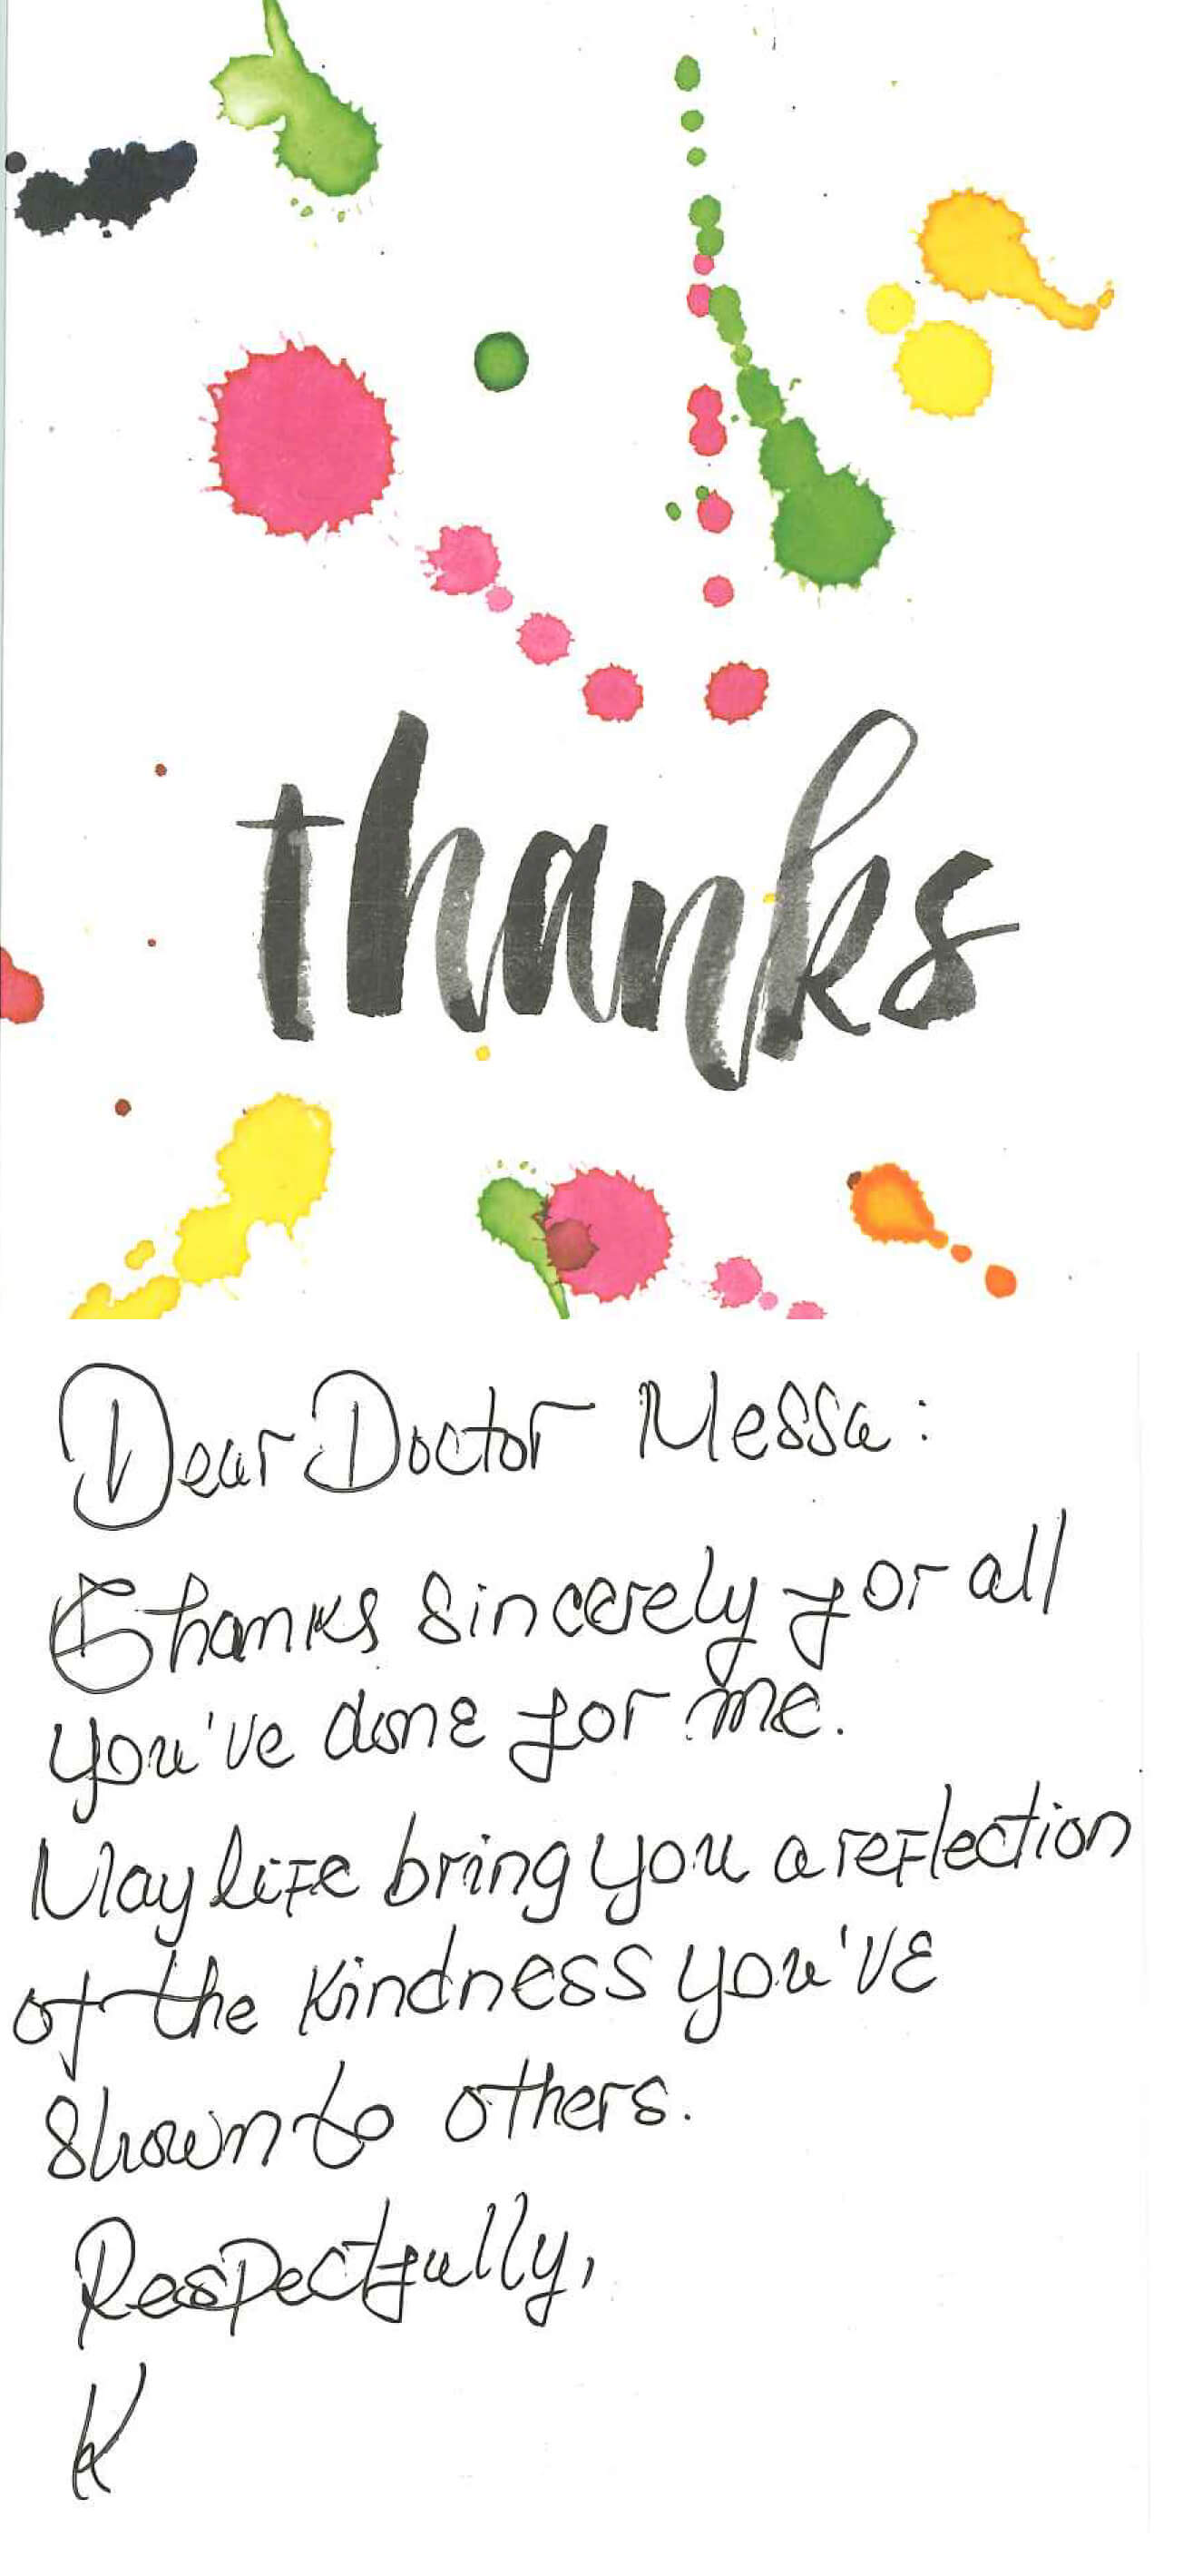 thanks
Dear Doctor Messa:
Thanks sincerely for all
you've done for me.
May life bring you a reflection
of the kindness you've
shown to others.
Respectfully,
K